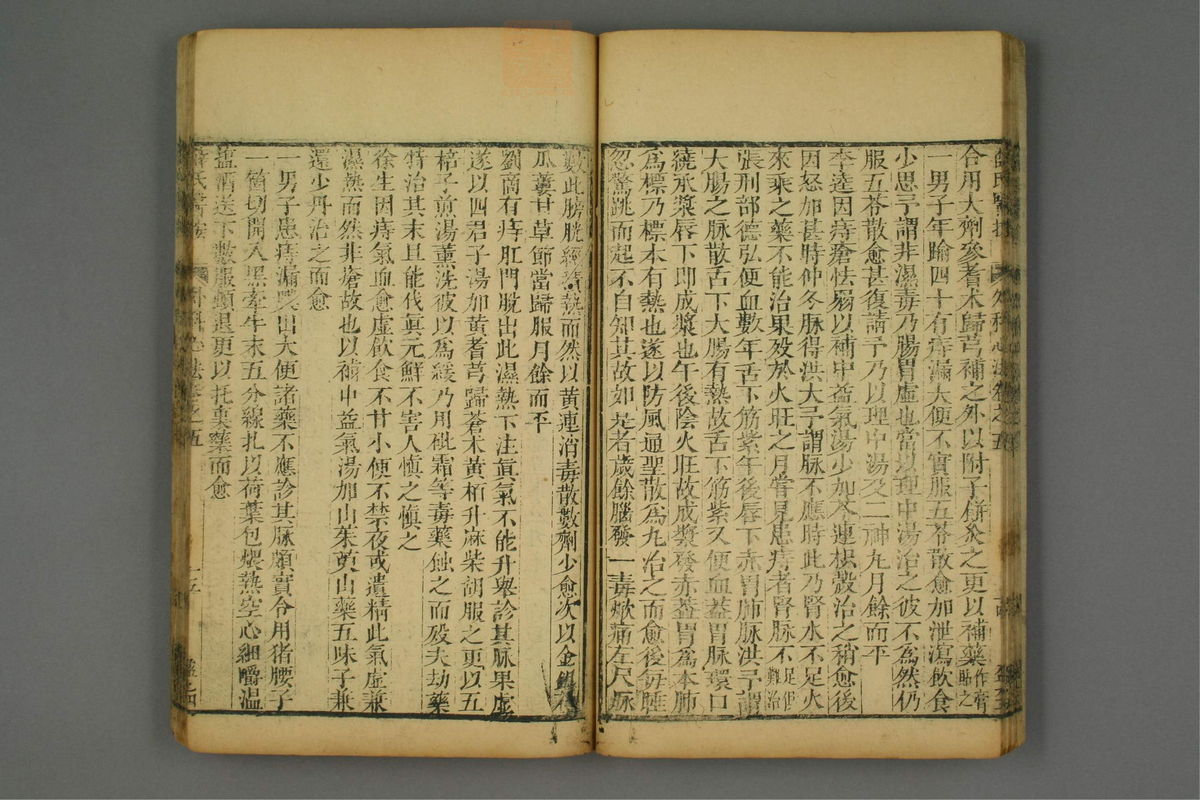 合用大劑參耆朮歸芎補之外以附子餅灸之更以補藥作膏貼之
一男子年踰四十有痔漏大便不實服五苓散愈加泄瀉飲食
少思予謂非濕毒乃腸胃虛也當以理中湯治之彼不爲然仍
服五苓散愈甚復請予乃以理中湯及二神丸月餘而平
李逵因痔瘡怯弱以補中益氣湯少加芩連枳殼治之稍愈後
因怒加甚時仲冬脉得洪大予謂脉不應時此乃腎水不足火
來乘之藥不能治果歿於火旺之月嘗見患痔者腎脉不足俱難治
張刑部德弘便血數年舌下筋紫午後唇下赤胃肺脉洪予謂
大腸之脉散舌下大腸有熱故舌下筋紫又便血蓋胃脉環口
繞承漿唇下即成漿也午後陰火旺故成漿發赤蓋胃爲本肺
爲標乃標本有熱也遂以防風通聖散爲丸治之而愈後每睡
忽驚跳而起不自知其故如是者歲餘腦發一毒焮痛左尺脉
數此膀胱經積熱而然以黃連消毒散數劑少愈次以金銀花
瓜蔞甘草節當歸服月餘而平
劉商有痔肛門脫出此濕熱下注眞氣不能升舉診其脉果虛
遂以四君子湯加黃耆芎歸蒼朮黃栢升麻柴胡服之更以五
棓子煎湯熏洗彼以爲緩乃用砒霜等毒藥蝕之而歿夫劫藥
特治其末且能伐眞元鮮不害人愼之愼之
徐生因痔氣血愈虛飲食不甘小便不禁夜或遺精此氣虛兼
濕熱而然非瘡故也以補中益氣湯加山茱萸山藥五味子兼
還少丹治之而愈
一男子患痔漏糞出大便諸藥不應診其脉頗實令用猪腰子
一箇切開入黑牽牛末五分線扎以荷葉包煨熱空心細嚼溫
鹽酒送下數服頓退更以托裏藥而愈